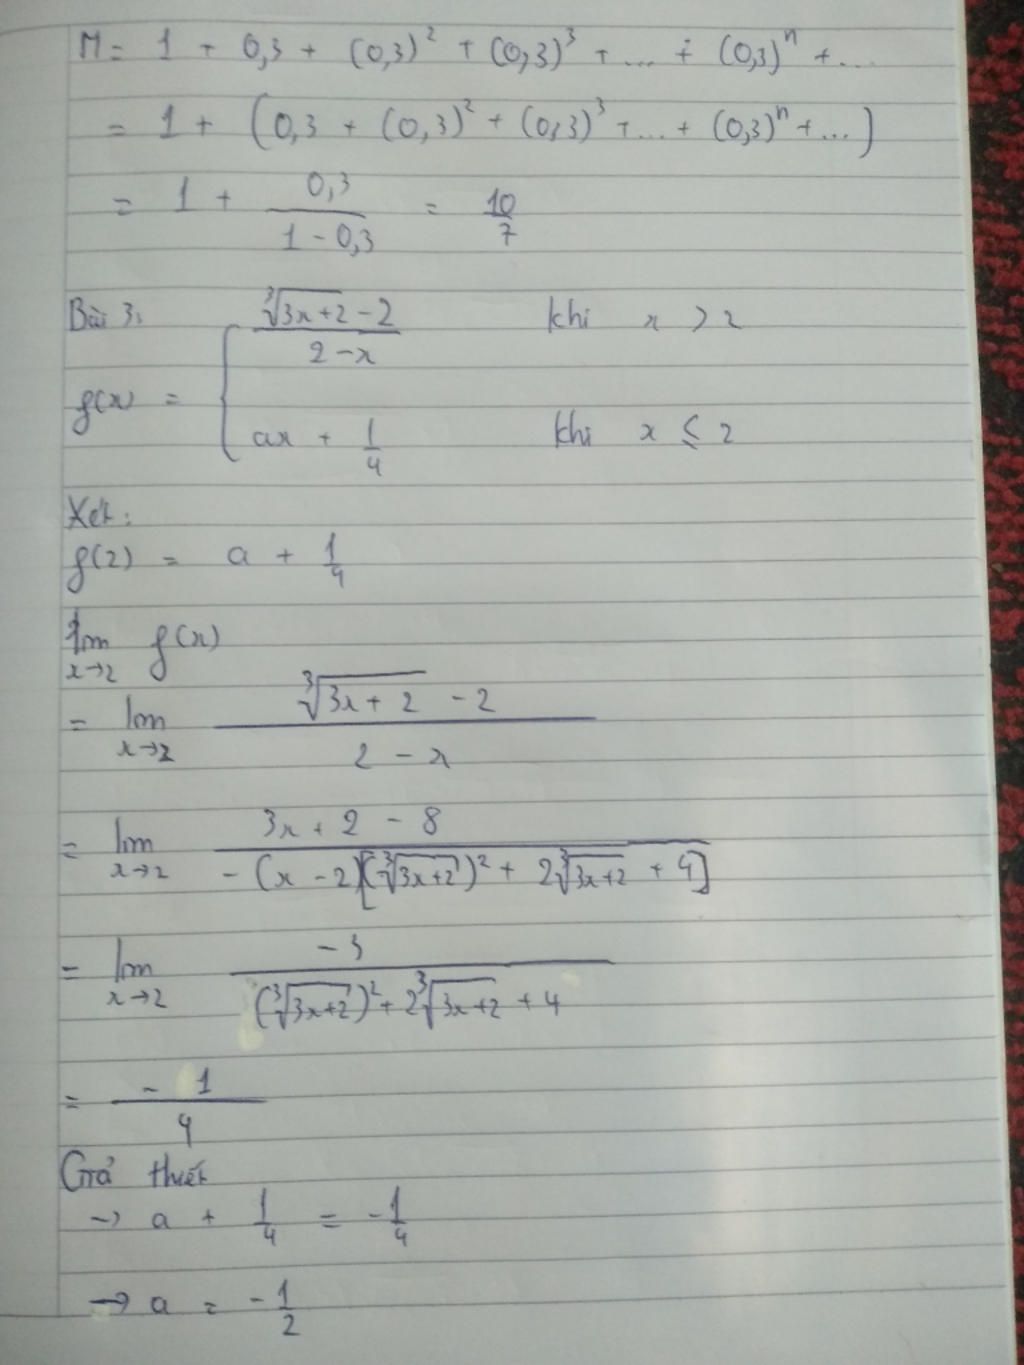 M = 1 + 0,3 + (0,3)² + (0,3)³ + ... + (0,3)ⁿ + ...
= 1 + (0,3 + (0,3)² + (0,3)³ + ... + (0,3)ⁿ + ...)
= 1 + 0,3/(1 - 0,3) = 10/7
Bài 3: (∛(3x+2) - 2)/(2 - x) khi x > 2
f(x) = {
ax + 1/4 khi x ≤ 2
Xét:
f(2) = a + 1/4
lim x→2 f(x)
= lim x→2 (∛(3x+2) - 2)/(2 - x)
= lim x→2 (3x + 2 - 8)/(-(x - 2)[(∛(3x+2))² + 2∛(3x+2) + 4])
= lim x→2 -3/((∛(3x+2))² + 2∛(3x+2) + 4)
= -1/4
Giả thiết
→ a + 1/4 = -1/4
→ a = -1/2